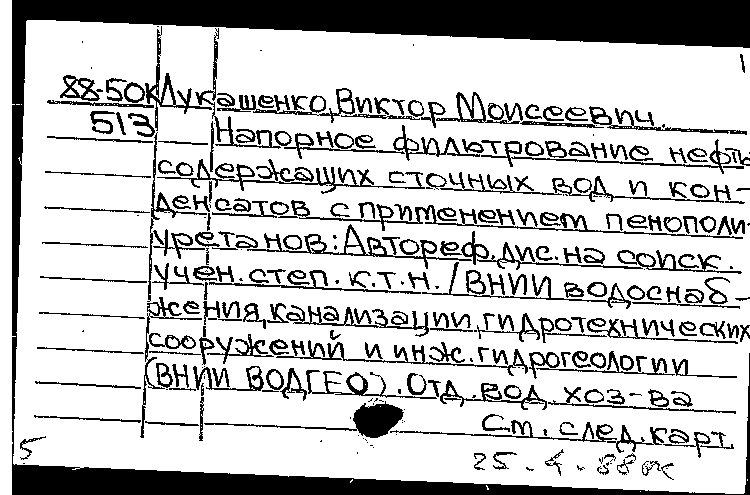 1
88-50К Лукашенко, Виктор Моисеевич.
513 Напорное фильтрование нефть
содержащих сточных вод и кон-
денсатов с применением пенополи-
уретанов: Автореф. дис. на соиск.
учен. степ. к.т.н. / ВНИИ водоснаб-
жения, канализации, гидротехнических
сооружений и инж. гидрогеологии
(ВНИИ ВОДГЕО). Отд. вод. хоз-ва
См. след. карт.
5 25.4.88